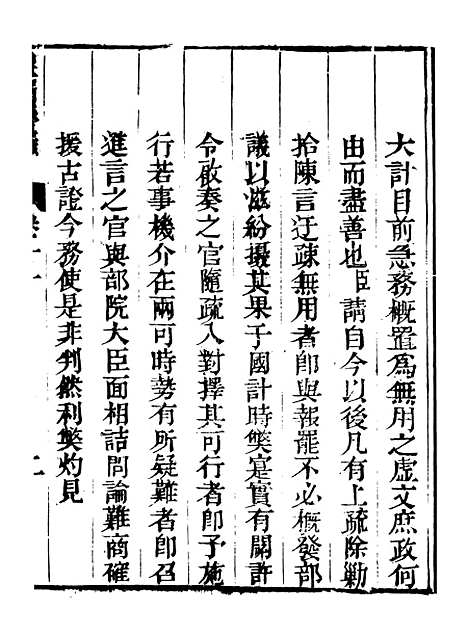 大計目前急務概置爲無用之虛文庶政何
由而盡善也臣請自今以後凡有上疏除勦
拾陳言迂疎無用者卽與報罷不必概發部
議以滋紛擾其果于國計時獘寔實有關許
令敢奏之官隨疏入對擇其可行者卽予施
行若事機介在兩可時勢有所疑難者卽召
進言之官與部院大臣面相詰問論難商確
援古證今務使是非判然利獘灼見